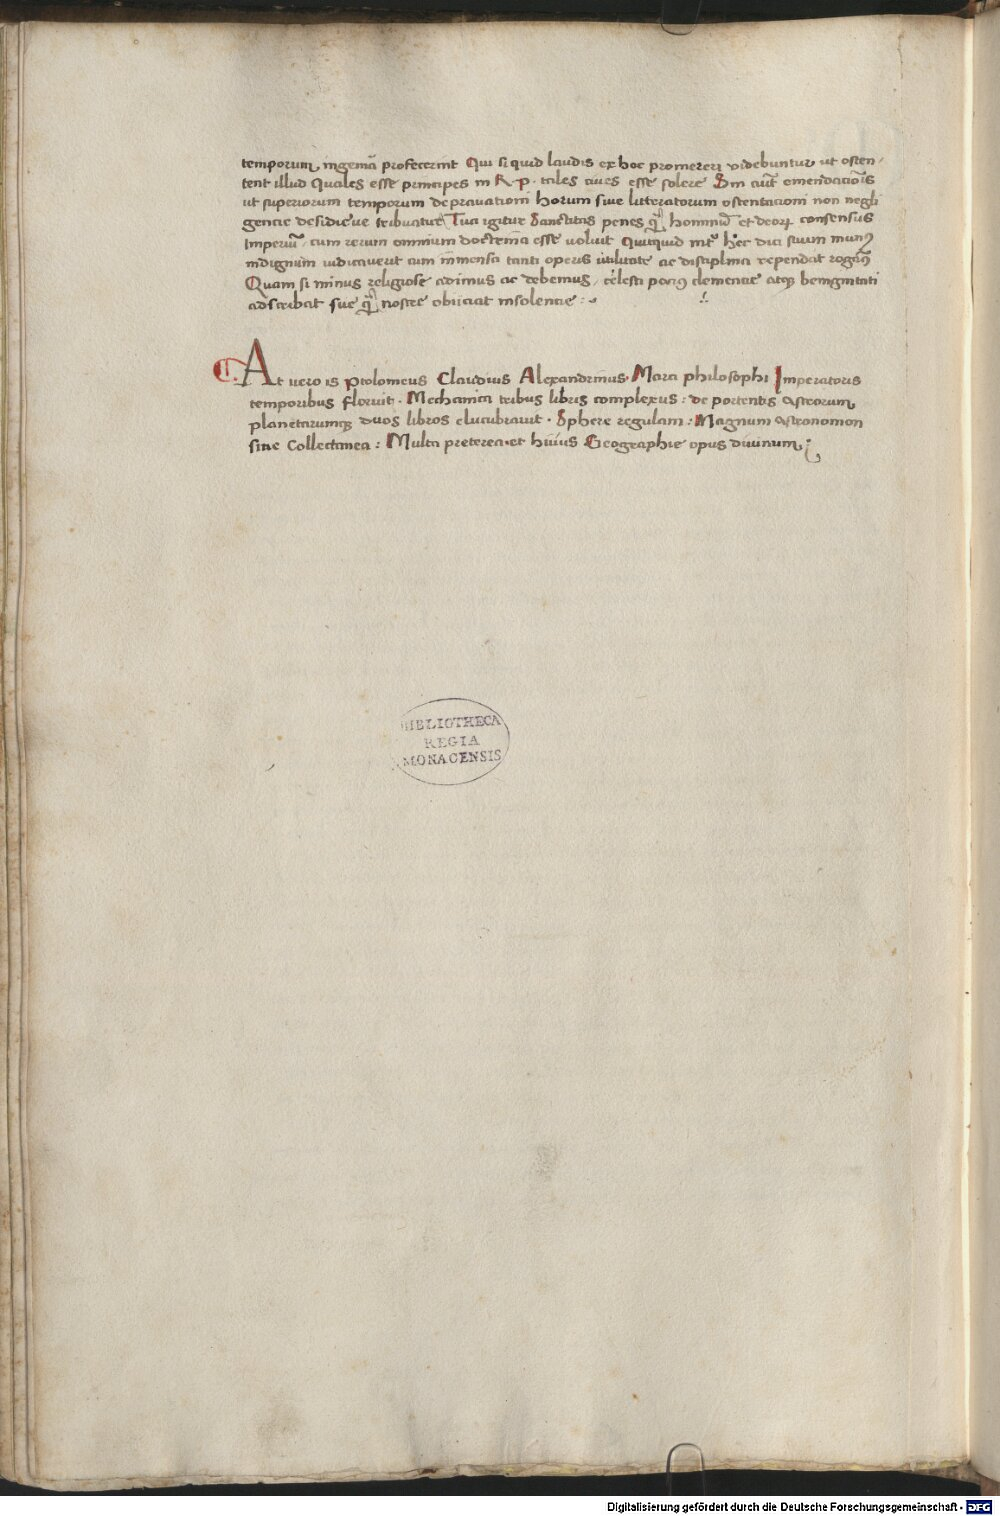 temporum ingenia profecerint Qui si quid laudis ex hoc promereri videbuntur ut osten-
tent illud Quales esse principes in R. p. tales cives esse solere Sin aut emendacionis
ut superiorum temporum depravationi horum sive litteratorum ostentacioni non negli
gencie desidie ve tribuatur Tua igitur Sanctitas penes hominum et deorum consensus
Imperium, cum rerum omnium doctrina esse voluit Quicquid hec dici suum munus
indignum iudicaverit cum immensa tanti operis utilitate ac disciplina rependat rogamus
Quam si minus religiose adimus ac debemus, celesti pocius clemencie atque benignitati
adscribat sue nostre obiiciat insolencie :
At vero is Ptolomeus Claudius Alexandrinus Marci philosophi Imperatoris
temporibus floruit . Mechanica tribus libris complexus : de portentis Astrorum
planetarumque duos libros elucubravit . Sphere regulam : Magnum Astronomon
sive Collectanea : Multa preterea et huius Geographie opus divinum ;
BIBLIOTHECA
REGIA
MONACENSIS
Digitalisierung gefördert durch die Deutsche Forschungsgemeinschaft - DFG